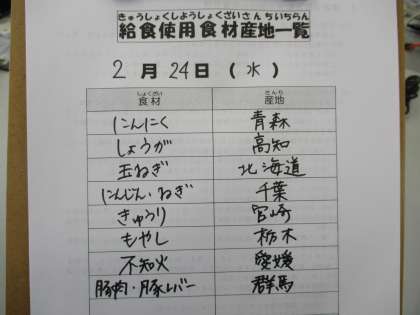 きゅうしょくしようしょくざいさんちいちらん
給食使用食材産地一覧
2月24日(水)
しょくざい さんち
食材 産地
にんにく 青森
しょうが 高知
玉ねぎ 北海道
にんじん・ねぎ 千葉
きゅうり 宮崎
もやし 栃木
不知火 愛媛
豚肉・豚レバー 群馬